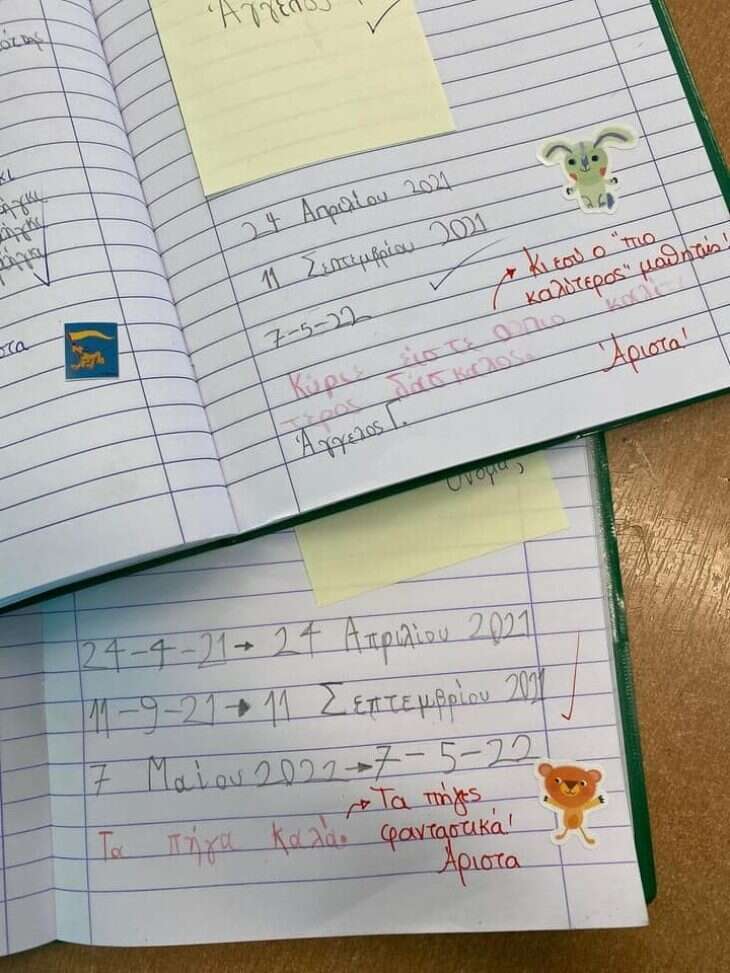 Άγγελος
24 Απριλίου 2021
11 Σεπτεμβρίου 2021
7-5-22
Κι εσύ ο "πιο
καλύτερος" μαθητής!
Κύριε είστε ο πιο καλί-
τερος δάσκαλος
Άριστα!
Άγγελος Γ.
Όνομα,
24-4-21→ 24 Απριλίου 2021
11-9-21→ 11 Σεπτεμβρίου 2021
7 Μαΐου 2022→7-5-22
Τα πήγα καλά.
Τα πήγες
φανταστικά!
Άριστα